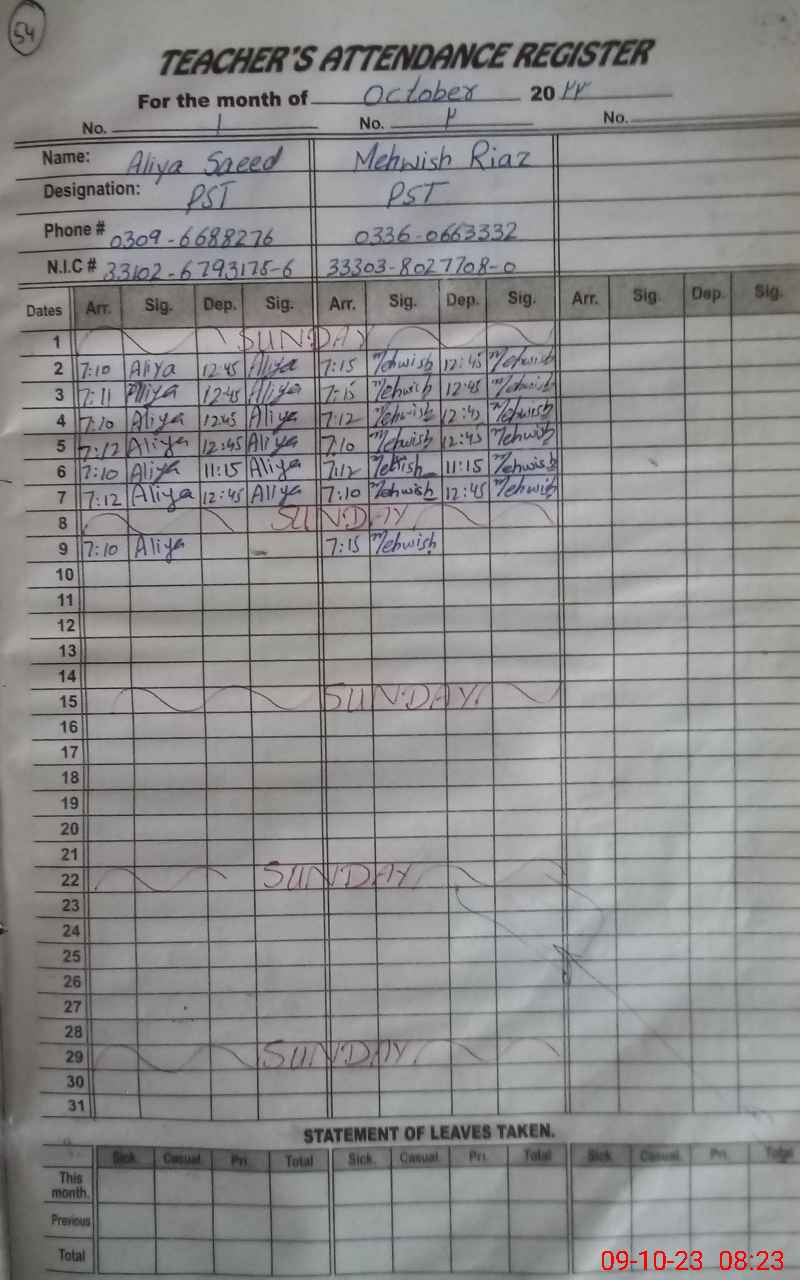 54
TEACHER'S ATTENDANCE REGISTER
For the month of October 20۲۳
No. 1 No. ۲ No.
Name: Aliya Saeed Mehwish Riaz
Designation: PST PST
Phone # 0309-6688276 0336-0663332
N.I.C # 33102-6793175-6 33303-8027708-0
Dates Arr. Sig. Dep. Sig. Arr. Sig. Dep. Sig. Arr. Sig. Dep. Sig.
1 SUNDAY
2 7:10 Aliya 12:45 Aliya 7:15 Mehwish 12:45 Mehwish
3 7:11 Aliya 12:45 Aliya 7:15 Mehwish 12:45 Mehwish
4 7:10 Aliya 12:45 Aliya 7:12 Mehwish 12:45 Mehwish
5 7:12 Aliya 12:45 Aliya 7:10 Mehwish 12:45 Mehwish
6 7:10 Aliya 11:15 Aliya 7:12 Mehwish 11:15 Mehwish
7 7:12 Aliya 12:45 Aliya 7:10 Mehwish 12:45 Mehwish
8 SUNDAY
9 7:10 Aliya 7:15 Mehwish
10
11
12
13
14
15 SUNDAY
16
17
18
19
20
21
22 SUNDAY
23
24
25
26
27
28
29 SUNDAY
30
31
STATEMENT OF LEAVES TAKEN.
Sick. Casual. Pri. Total Sick. Casual. Pri. Total Sick. Casual. Pri. Total
This month.
Previous
Total
09-10-23 08:23